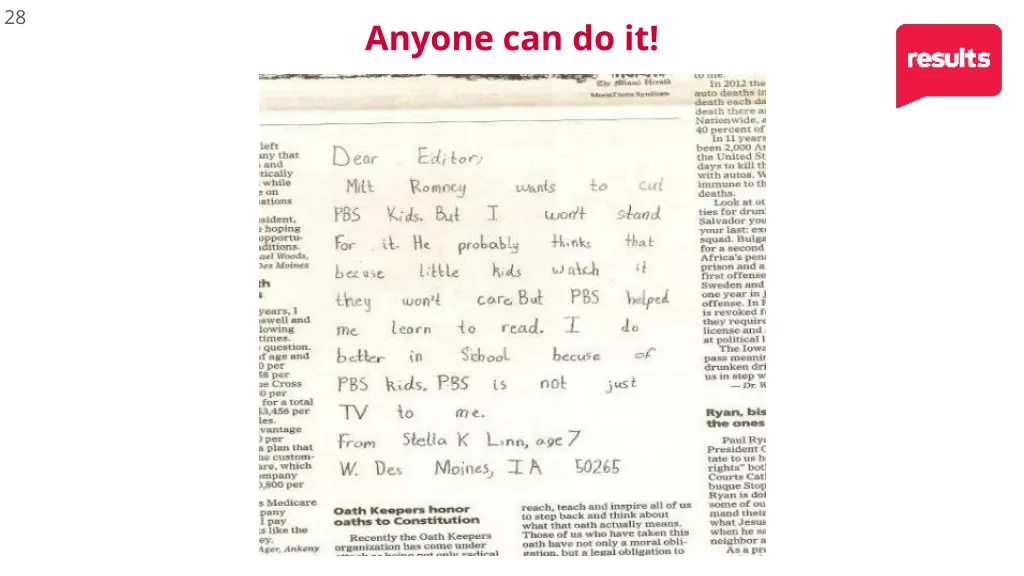 28
Anyone can do it!
results
The Miami Herald
MovieToons Syndicate
left
any that
and
etically
while
e on
ations
sident,
hoping
opportu-
ditions.
ael Woods,
Des Moines
th
s
years, I
swell and
lowing
times.
question.
of age and
0 per
58 per
ue Cross
0 per
for a total
$3,456 per
les.
vantage
) per
s plan that
he custom-
are, which
ompany
0,800 per
s Medicare
pany
I pay
s like the
ey.
Ager, Ankeny
Dear Editor,
Mitt Romney wants to cut
PBS Kids. But I won't stand
For it. He probably thinks that
becuse little kids watch it
they won't care. But PBS helped
me learn to read. I do
better in School becuse of
PBS kids. PBS is not just
TV to me.
From Stella K Linn, age 7
W. Des Moines, IA 50265
Oath Keepers honor
oaths to Constitution
Recently the Oath Keepers
organization has come under
reach, teach and inspire all of us
to step back and think about
what that oath actually means.
Those of us who have taken this
oath have not only a moral obli-
gation, but a legal obligation to
to me.
In 2012 the
auto deaths in
death each da
death there a
Nationwide, a
40 percent of
In 11 years
been 2,000 Ar
the United St
days to kill th
with autos. W
immune to th
deaths.
Look at ot
ties for drun
Salvador you
your last: exe
squad. Bulga
for a second
Africa's pena
prison and a
first offense
Sweden and
one year in j
offense. In F
is revoked f
they require
license and
at political l
The Iowa
pass meanin
drunken dri
us in step w
— Dr. W
Ryan, bis
the ones
Paul Rya
President C
tate to us h
rights" both
Courts Cath
buque Stop
Ryan is doi
some of ou
mand thei
what Jesus
when he sa
neighbor a
As a pr